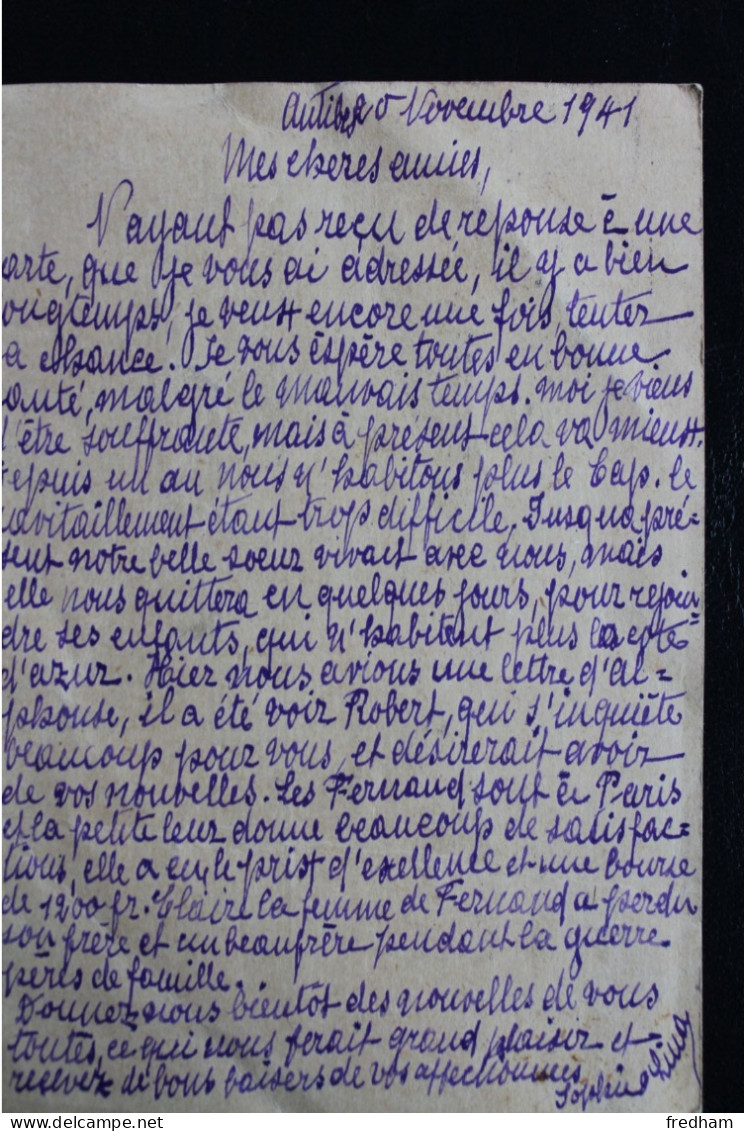 Antibes 20 Novembre 1941
Mes cheres amies,
N'ayant pas reçu de reponse à une
arte, que je vous ai adressée, il y a bien
ongtemps, je veux encore une fois, tenter
a chance. Je vous éspère toutes en bonne
anté, malgré le mauvais temps. Moi je viens
d'être souffrante, mais à présent cela va mieux.
epuis un an nous n'habitons plus le Cap. le
avitaillement étant trop difficile. Jusqu'a pré=
sent notre belle soeur vivait avec nous, mais
elle nous quittera en quelques jours, pour rejoin=
dre ses enfants, qui n'habitent plus la côte
d'azur. Hier nous avions une lettre d'Al=
phonse, il a été voir Robert, qui s'inquiète
beaucoup pour vous, et désirerait avoir
de vos nouvelles. Les Fernand sont à Paris
et la petite leur donne beaucoup de satisfac=
tions, elle a eu le prix d'exellence et une bourse
de 1200 fr. Claire la femme de Fernand a perdu
son frère et un beaufrère pendant la guerre
pères de famille.
Donnez-nous bientôt des nouvelles de vous
toutes, ce qui nous ferait grand plaisir et
recevez de bons baisers de vos affectionnées
Sophie Lina
delcampe.net
fredham